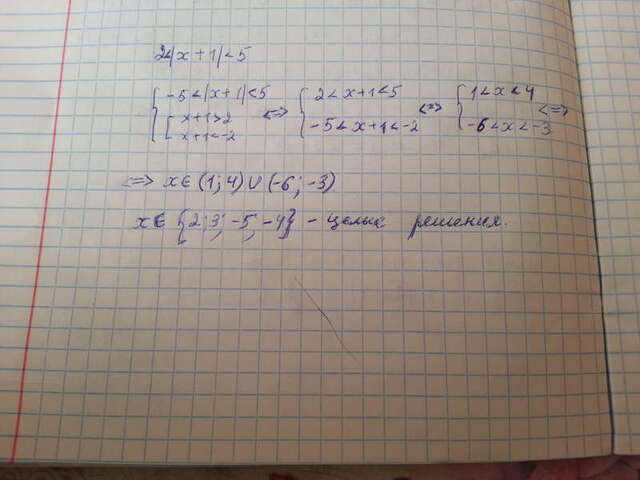 2<|x+1|<5
{ -5<|x+1|<5 [ x+1>2 x+1<-2 <=> { 2<x+1<5 -5<x+1<-2 <=> { 1<x<4 -6<x<-3 <=>
<=> x∈(1;4)∪(-6;-3)
x∈{2;3;-5;-4} - целых решения.